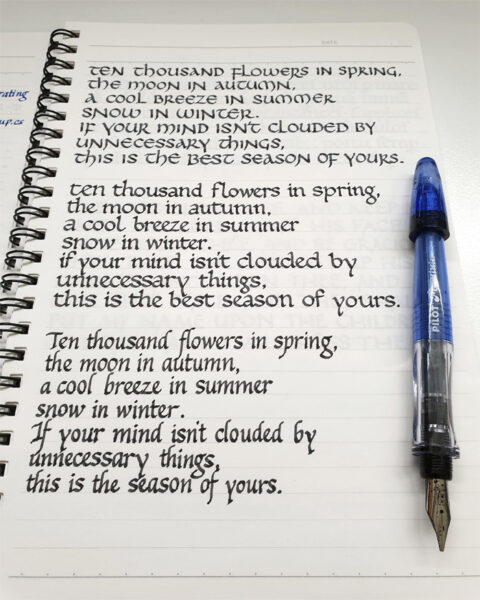 DATE
rating
up.es
TEN THOUSAND FLOWERS IN SPRING,
THE MOON IN AUTUMN,
A COOL BREEZE IN SUMMER
SNOW IN WINTER.
IF YOUR MIND ISN'T CLOUDED BY
UNNECESSARY THINGS,
THIS IS THE BEST SEASON OF YOURS.
ten thousand flowers in spring,
the moon in autumn,
a cool breeze in summer
snow in winter.
if your mind isn't clouded by
unnecessary things,
this is the best season of yours.
Ten thousand flowers in spring,
the moon in autumn,
a cool breeze in summer
snow in winter.
If your mind isn't clouded by
unnecessary things,
this is the season of yours.
PILOT